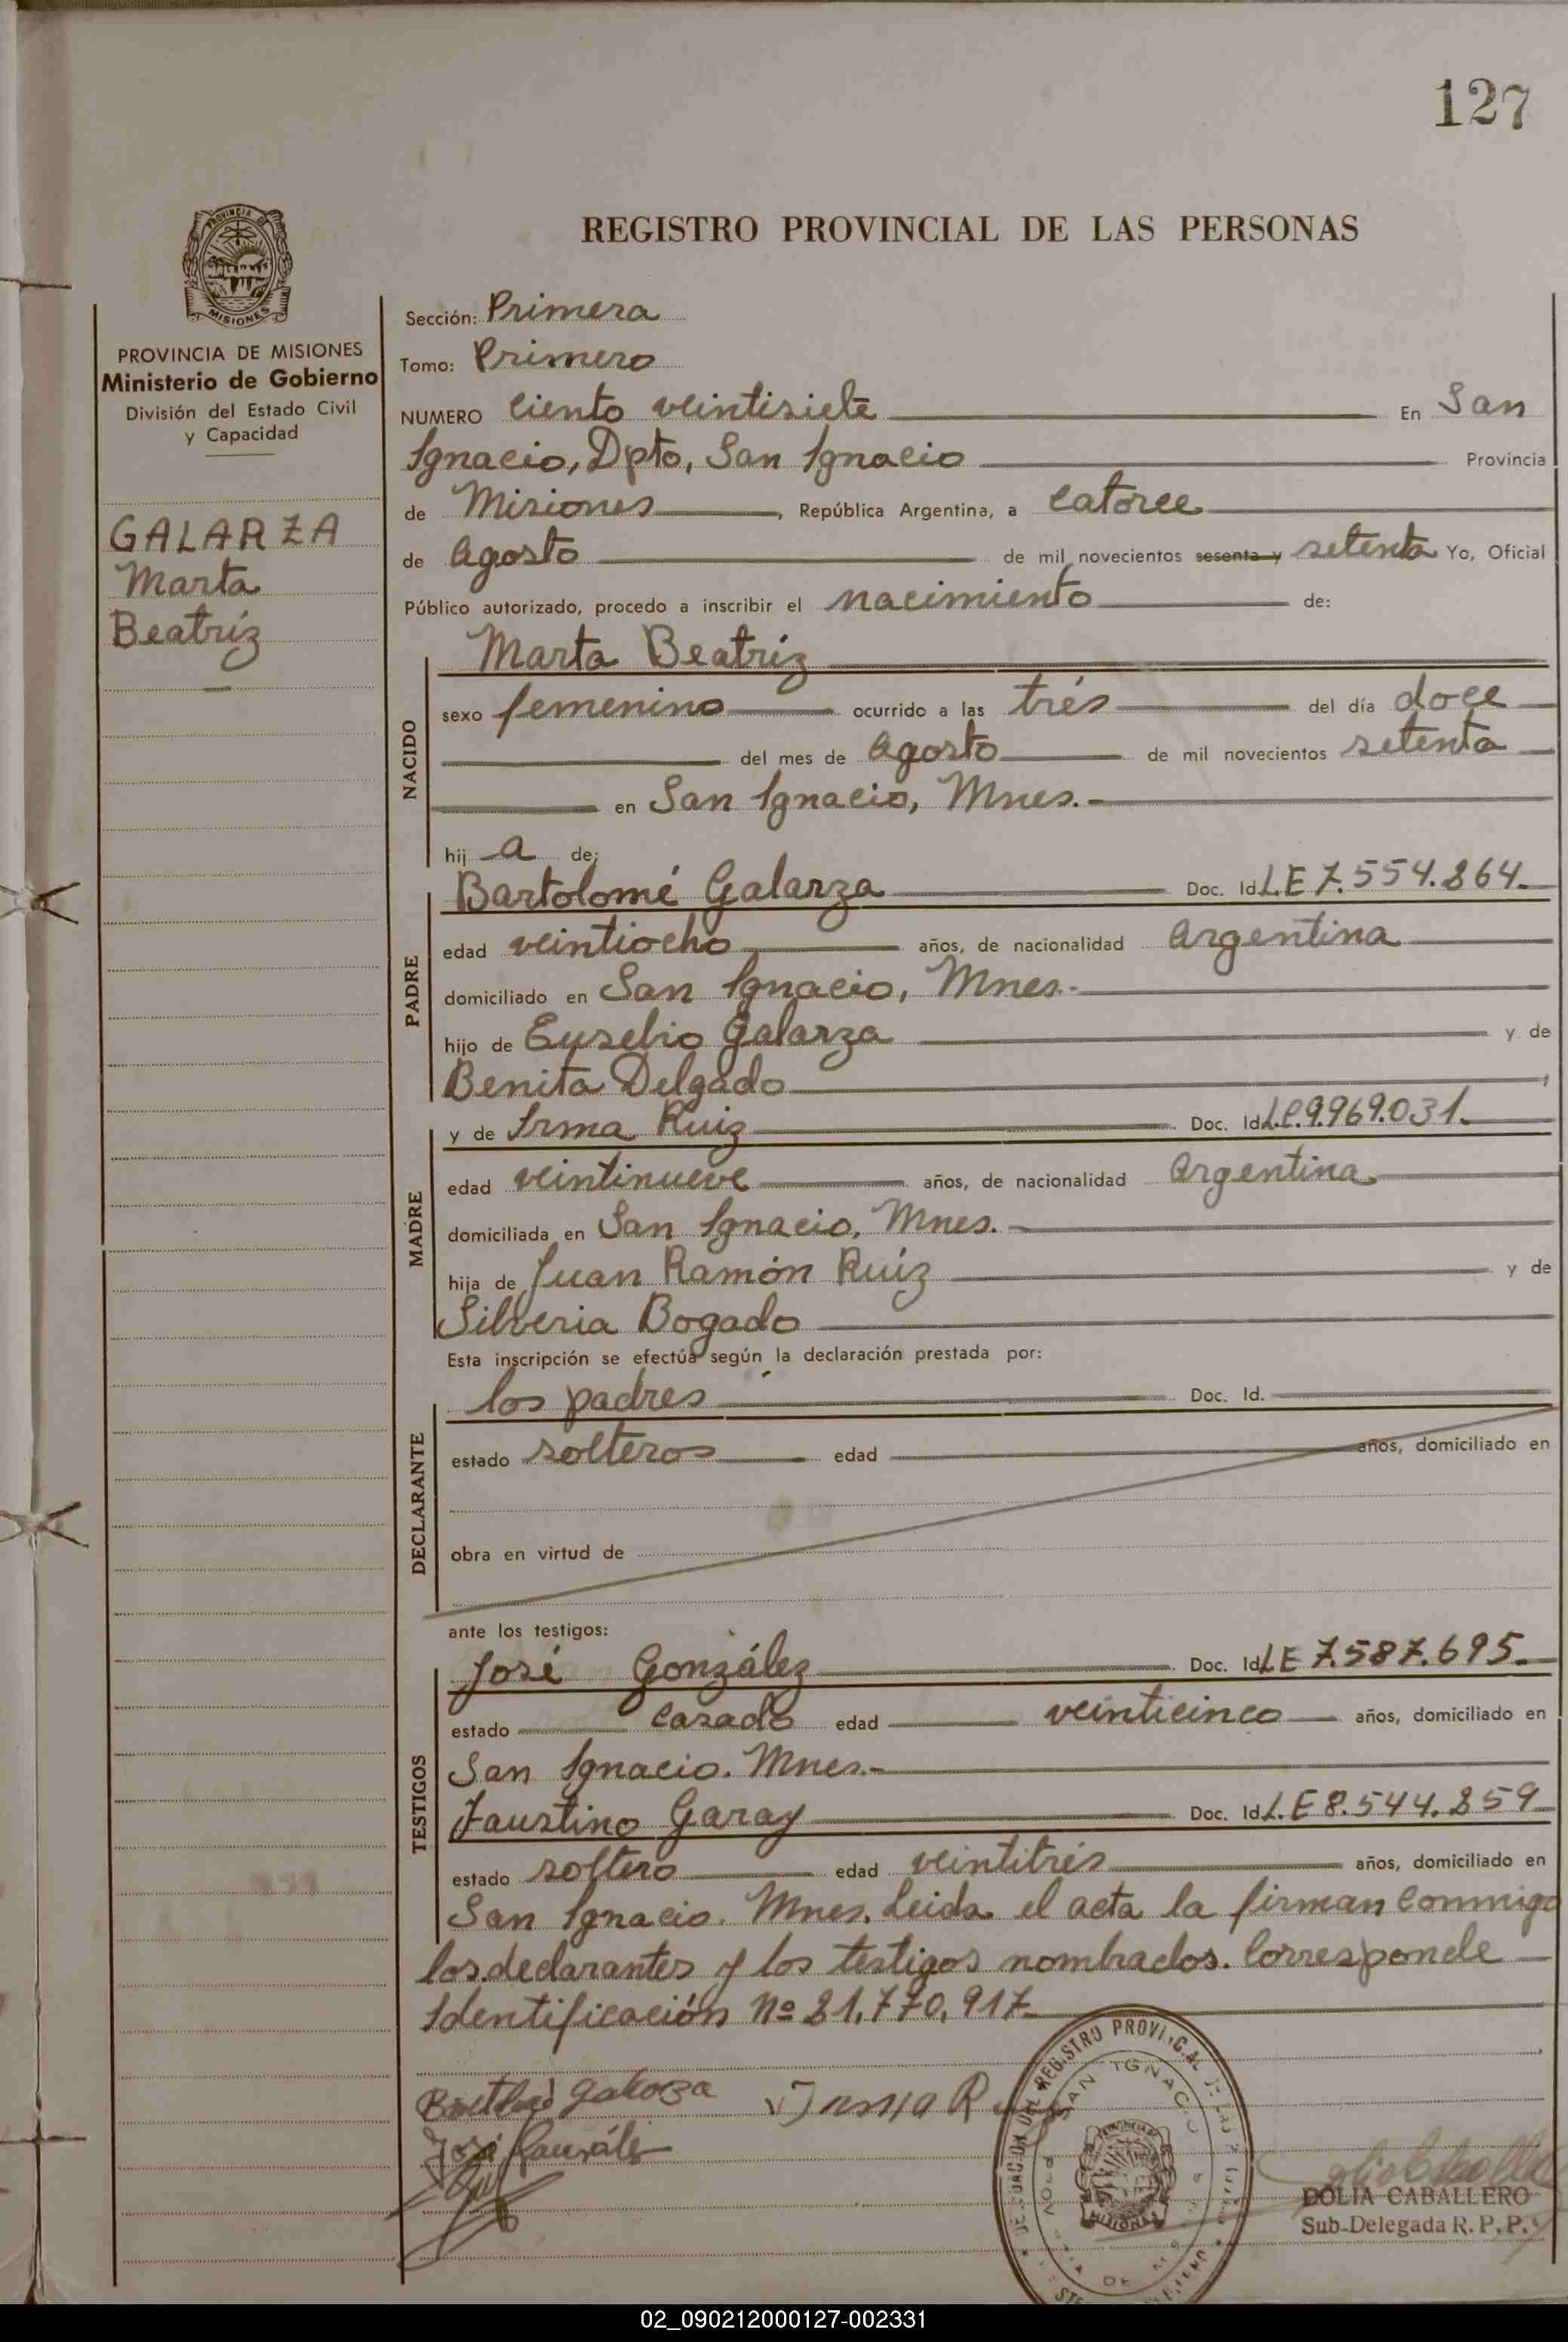 127
REGISTRO PROVINCIAL DE LAS PERSONAS
MISIONES
PROVINCIA DE MISIONES
Ministerio de Gobierno
División del Estado Civil
y Capacidad
GALARZA
Marta
Beatríz
Sección: Primera
Tomo: Primero
NUMERO Ciento veintisiete En San
Ignacio, Dpto, San Ignacio Provincia
de Misiones, República Argentina, a Catorce
de Agosto de mil novecientos sesenta y setenta Yo, Oficial
Público autorizado, procedo a inscribir el nacimiento de:
NACIDO
Marta Beatríz
sexo femenino ocurrido a las trés del día doce
del mes de Agosto de mil novecientos setenta
en San Ignacio, Mnes.-
hij a de:
PADRE
Bartolomé Galarza Doc. Id L.E 7.554.864.
edad veintiocho años, de nacionalidad Argentina
domiciliado en San Ignacio, Mnes.-
hijo de Eusebio Galarza y de
Benita Delgado
MADRE
y de Irma Ruiz Doc. Id L.C.9.969.031.
edad veintinueve años, de nacionalidad Argentina
domiciliada en San Ignacio, Mnes.-
hija de Juan Ramón Ruíz y de
Silveria Bogado
Esta inscripción se efectúa según la declaración prestada por:
DECLARANTE
los padres Doc. Id.
estado solteros edad años, domiciliado en
obra en virtud de
ante los testigos:
TESTIGOS
José González Doc. Id L.E 7.587.695.
estado Casado edad veinticinco años, domiciliado en
San Ignacio. Mnes.-
Faustino Garay Doc. Id L.E 8.544.859
estado soltero edad veintitrés años, domiciliado en
San Ignacio. Mnes. Leida el acta la firman Conmigo
los declarantes y los testigos nombrados. Corresponde
Identificación Nº 21.770.917
Irma R
José González
SAN IGNACIO
MISIONES
DOLIA CABALLERO
Sub-Delegada R. P. P.
02_090212000127-002331